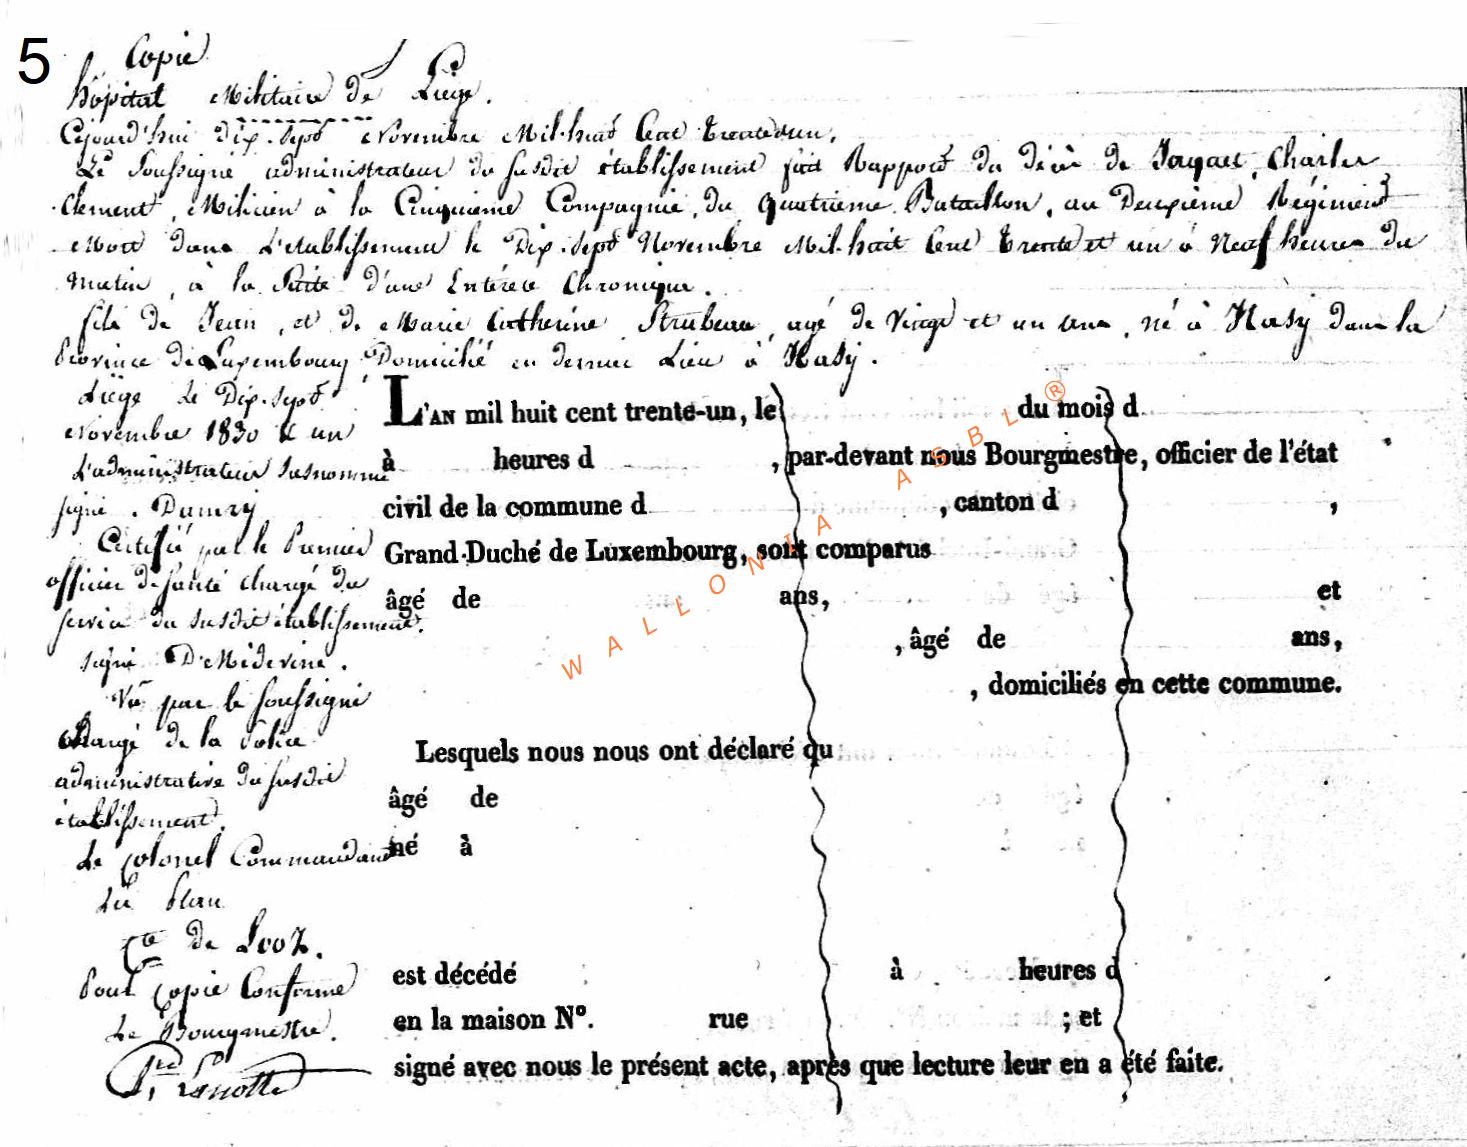 5
Copie
hôpital Militaire de Liège.
Cejourd'hui dix-sept Novembre Mil-huit Cent Trente-un,
Le Soussigné administrateur du susdit établissement fait Rapport du décès de Charles
Clement, Milicien à la Cinquième Compagnie, du quatrième Bataillon, au Deuxième Régiment
Mort dans L'établissement le Dix-sept Novembre Mil-huit Cent trente et un à Neuf heures du
Matin, à la Suite d'une Entérite Chronique.
fils de Jean, et de Marie Catherine Strubeau, agé de Vingt et un ans, né à Habÿ dans la
Province de Luxembourg Domicilié en dernier Lieu à Habÿ.
Liège Le Dix-sept
Novembre 1830 & un
L'administrateur susnommé
signé.
Certifié par le Premier
officier de santé chargé du
service du susdit établissement.
signé
Vû par le soussigné
chargé de la Police
administrative du susdit
établissement.
Le Colonel Commandant
La Place
Cte de Looz.
Pour Copie Conforme
Le Bourgmestre.
L'AN mil huit cent trente-un, le du mois d
à heures d , par-devant nous Bourgmestre, officier de l'état
civil de la commune d , canton d ,
Grand-Duché de Luxembourg, sont comparus
âgé de ans, et
, âgé de ans,
, domiciliés en cette commune.
Lesquels nous nous ont déclaré qu
âgé de
né à
est décédé à heures d
en la maison N°. rue ; et
signé avec nous le présent acte, après que lecture leur en a été faite.
WALLONIA ASBL ®